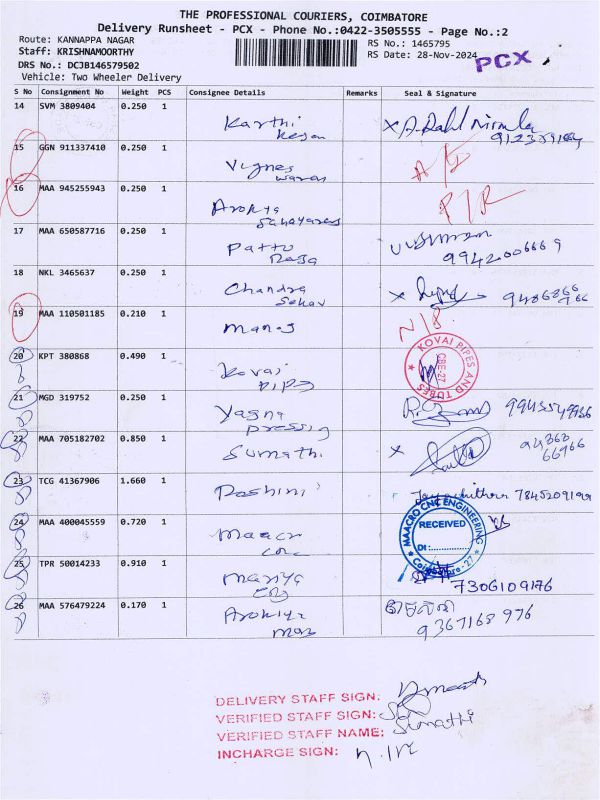 THE PROFESSIONAL COURIERS, COIMBATORE
Delivery Runsheet - PCX - Phone No.:0422-3505555 - Page No.:2
Route: KANNAPPA NAGAR
RS No.: 1465795
Staff: KRISHNAMOORTHY
RS Date: 28-Nov-2024
PCX
DRS No.: DCJB146579502
Vehicle: Two Wheeler Delivery
S No Consignment No Weight PCS Consignee Details Remarks Seal & Signature
14 SVM 3809404 0.250 1
Karthi
15 GGN 911337410 0.250 1
Vignes
waran
16 MAA 945255943 0.250 1
Arokya
17 MAA 650587716 0.250 1
Pattu
Raja
9942006669
18 NKL 3465637 0.250 1
Chandra
Sekar
19 MAA 110501185 0.210 1
Manoj
N/S
20 KPT 380868 0.490 1
Kovai
Pips
KOVAI PIPES AND TUBES
CBE-27
21 MGD 319752 0.250 1
Yagna
pressing
22 MAA 705182702 0.850 1
Sumathi
94366
66966
23 TCG 41367906 1.660 1
Roshini
7845209199
24 MAA 400045559 0.720 1
Maacro
cnc
MAACRO CNC ENGINEERING
RECEIVED
Dt:............
Coimbatore-27
25 TPR 50014233 0.910 1
Mariya
7306109176
26 MAA 576479224 0.170 1
9367168 976
DELIVERY STAFF SIGN:
VERIFIED STAFF SIGN:
VERIFIED STAFF NAME: Sumathi
INCHARGE SIGN: